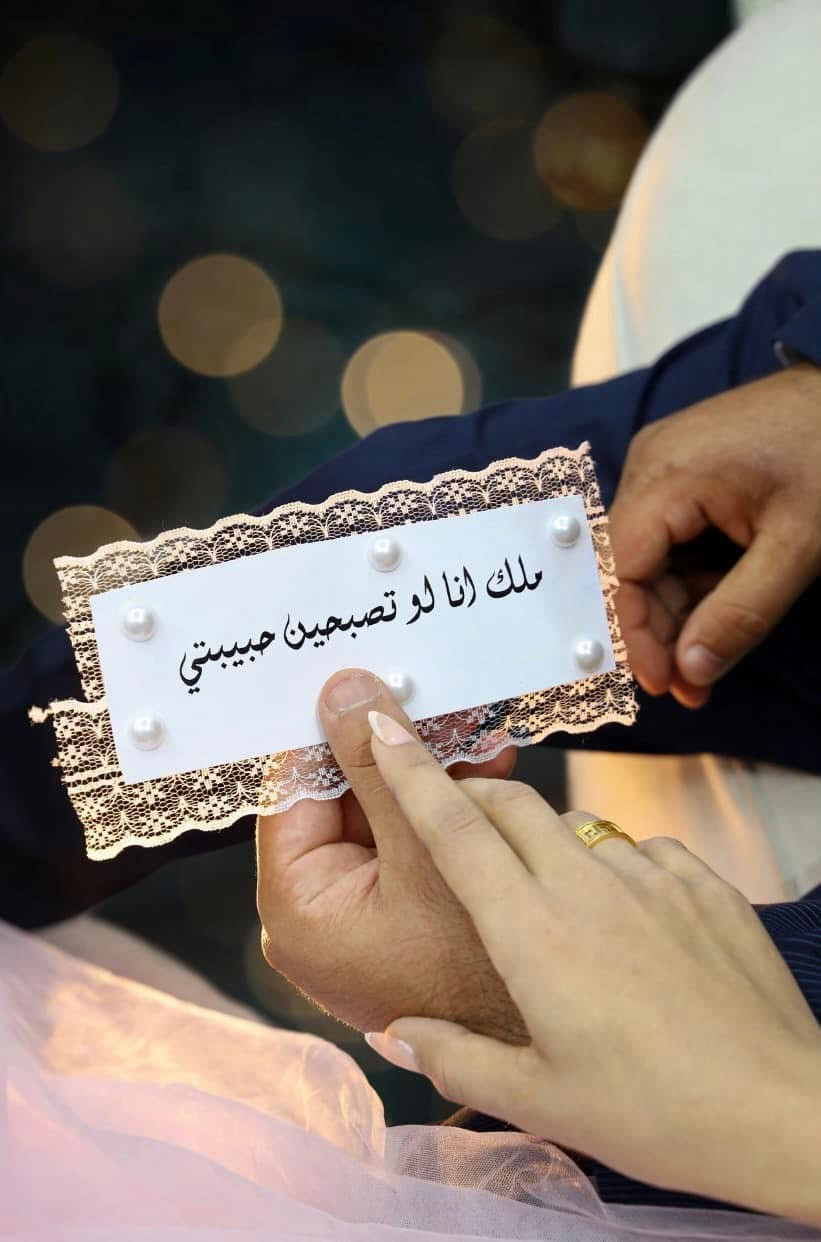 ملك انا لو تصبحين حبيبتي